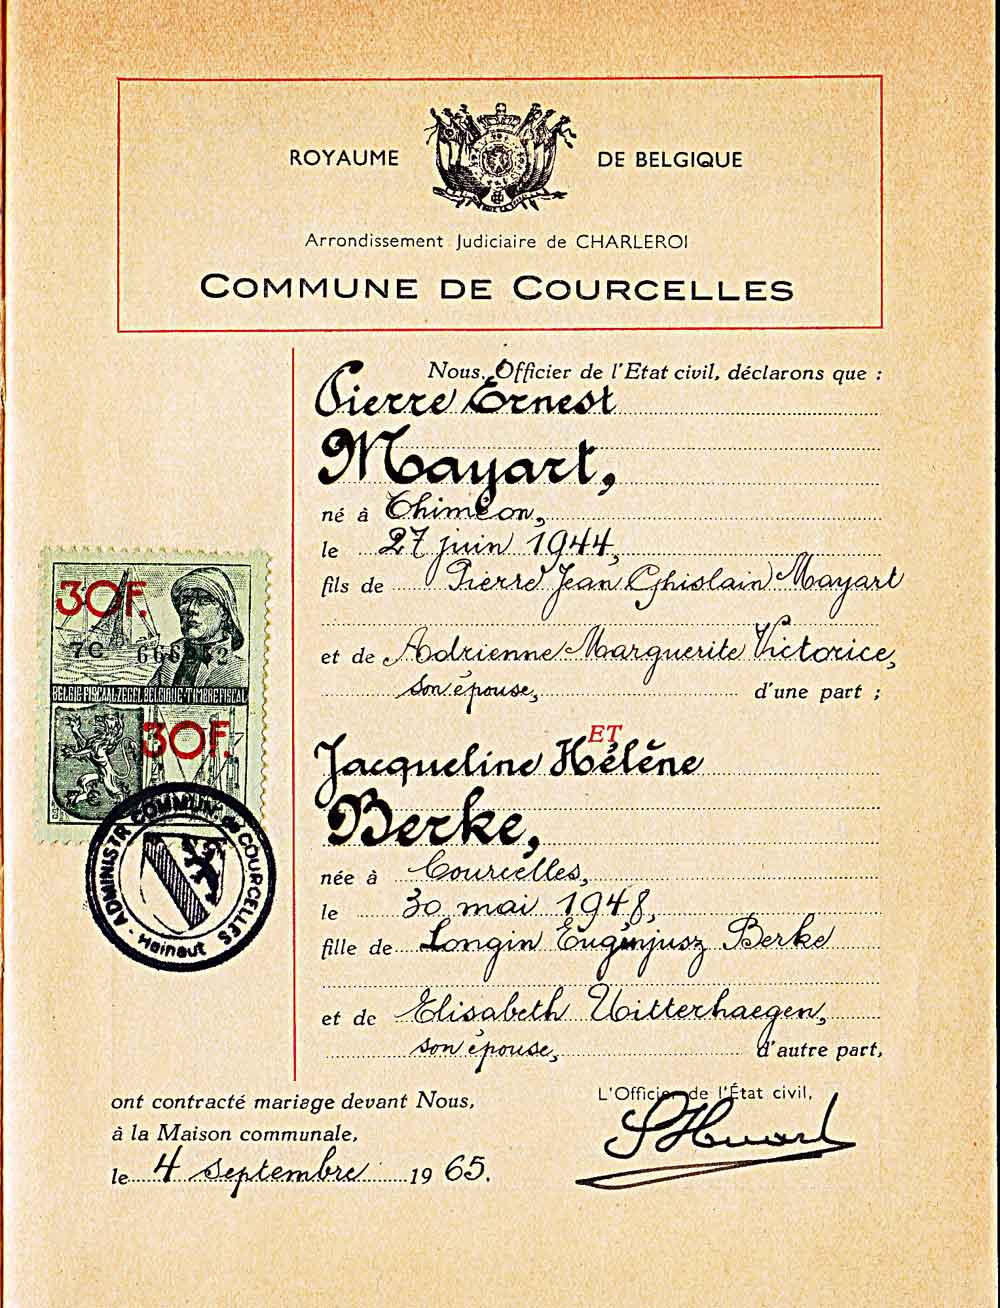 ROYAUME DE BELGIQUE
Arrondissement Judiciaire de CHARLEROI
COMMUNE DE COURCELLES
Nous, Officier de l'Etat civil, déclarons que :
Pierre Ernest
Mayart,
né à Thiméon,
le 27 juin 1944,
fils de Pierre Jean Ghislain Mayart
et de Adrienne Marguerite Victorice,
son épouse, d'une part ;
ET
Jacqueline Hélène
Berke,
née à Courcelles,
le 30 mai 1948,
fille de Longin Eugenjusz Berke
et de Elisabeth Uitterhaegen,
son épouse, d'autre part,
30F.
7C
BELGIE·FISCAALZEGEL BELGIQUE·TIMBRE FISCAL
30F.
ADMINISTR COMMUN. de COURCELLES
- Hainaut
ont contracté mariage devant Nous,
à la Maison communale,
le 4 septembre 1965.
L'Officier de l'État civil,